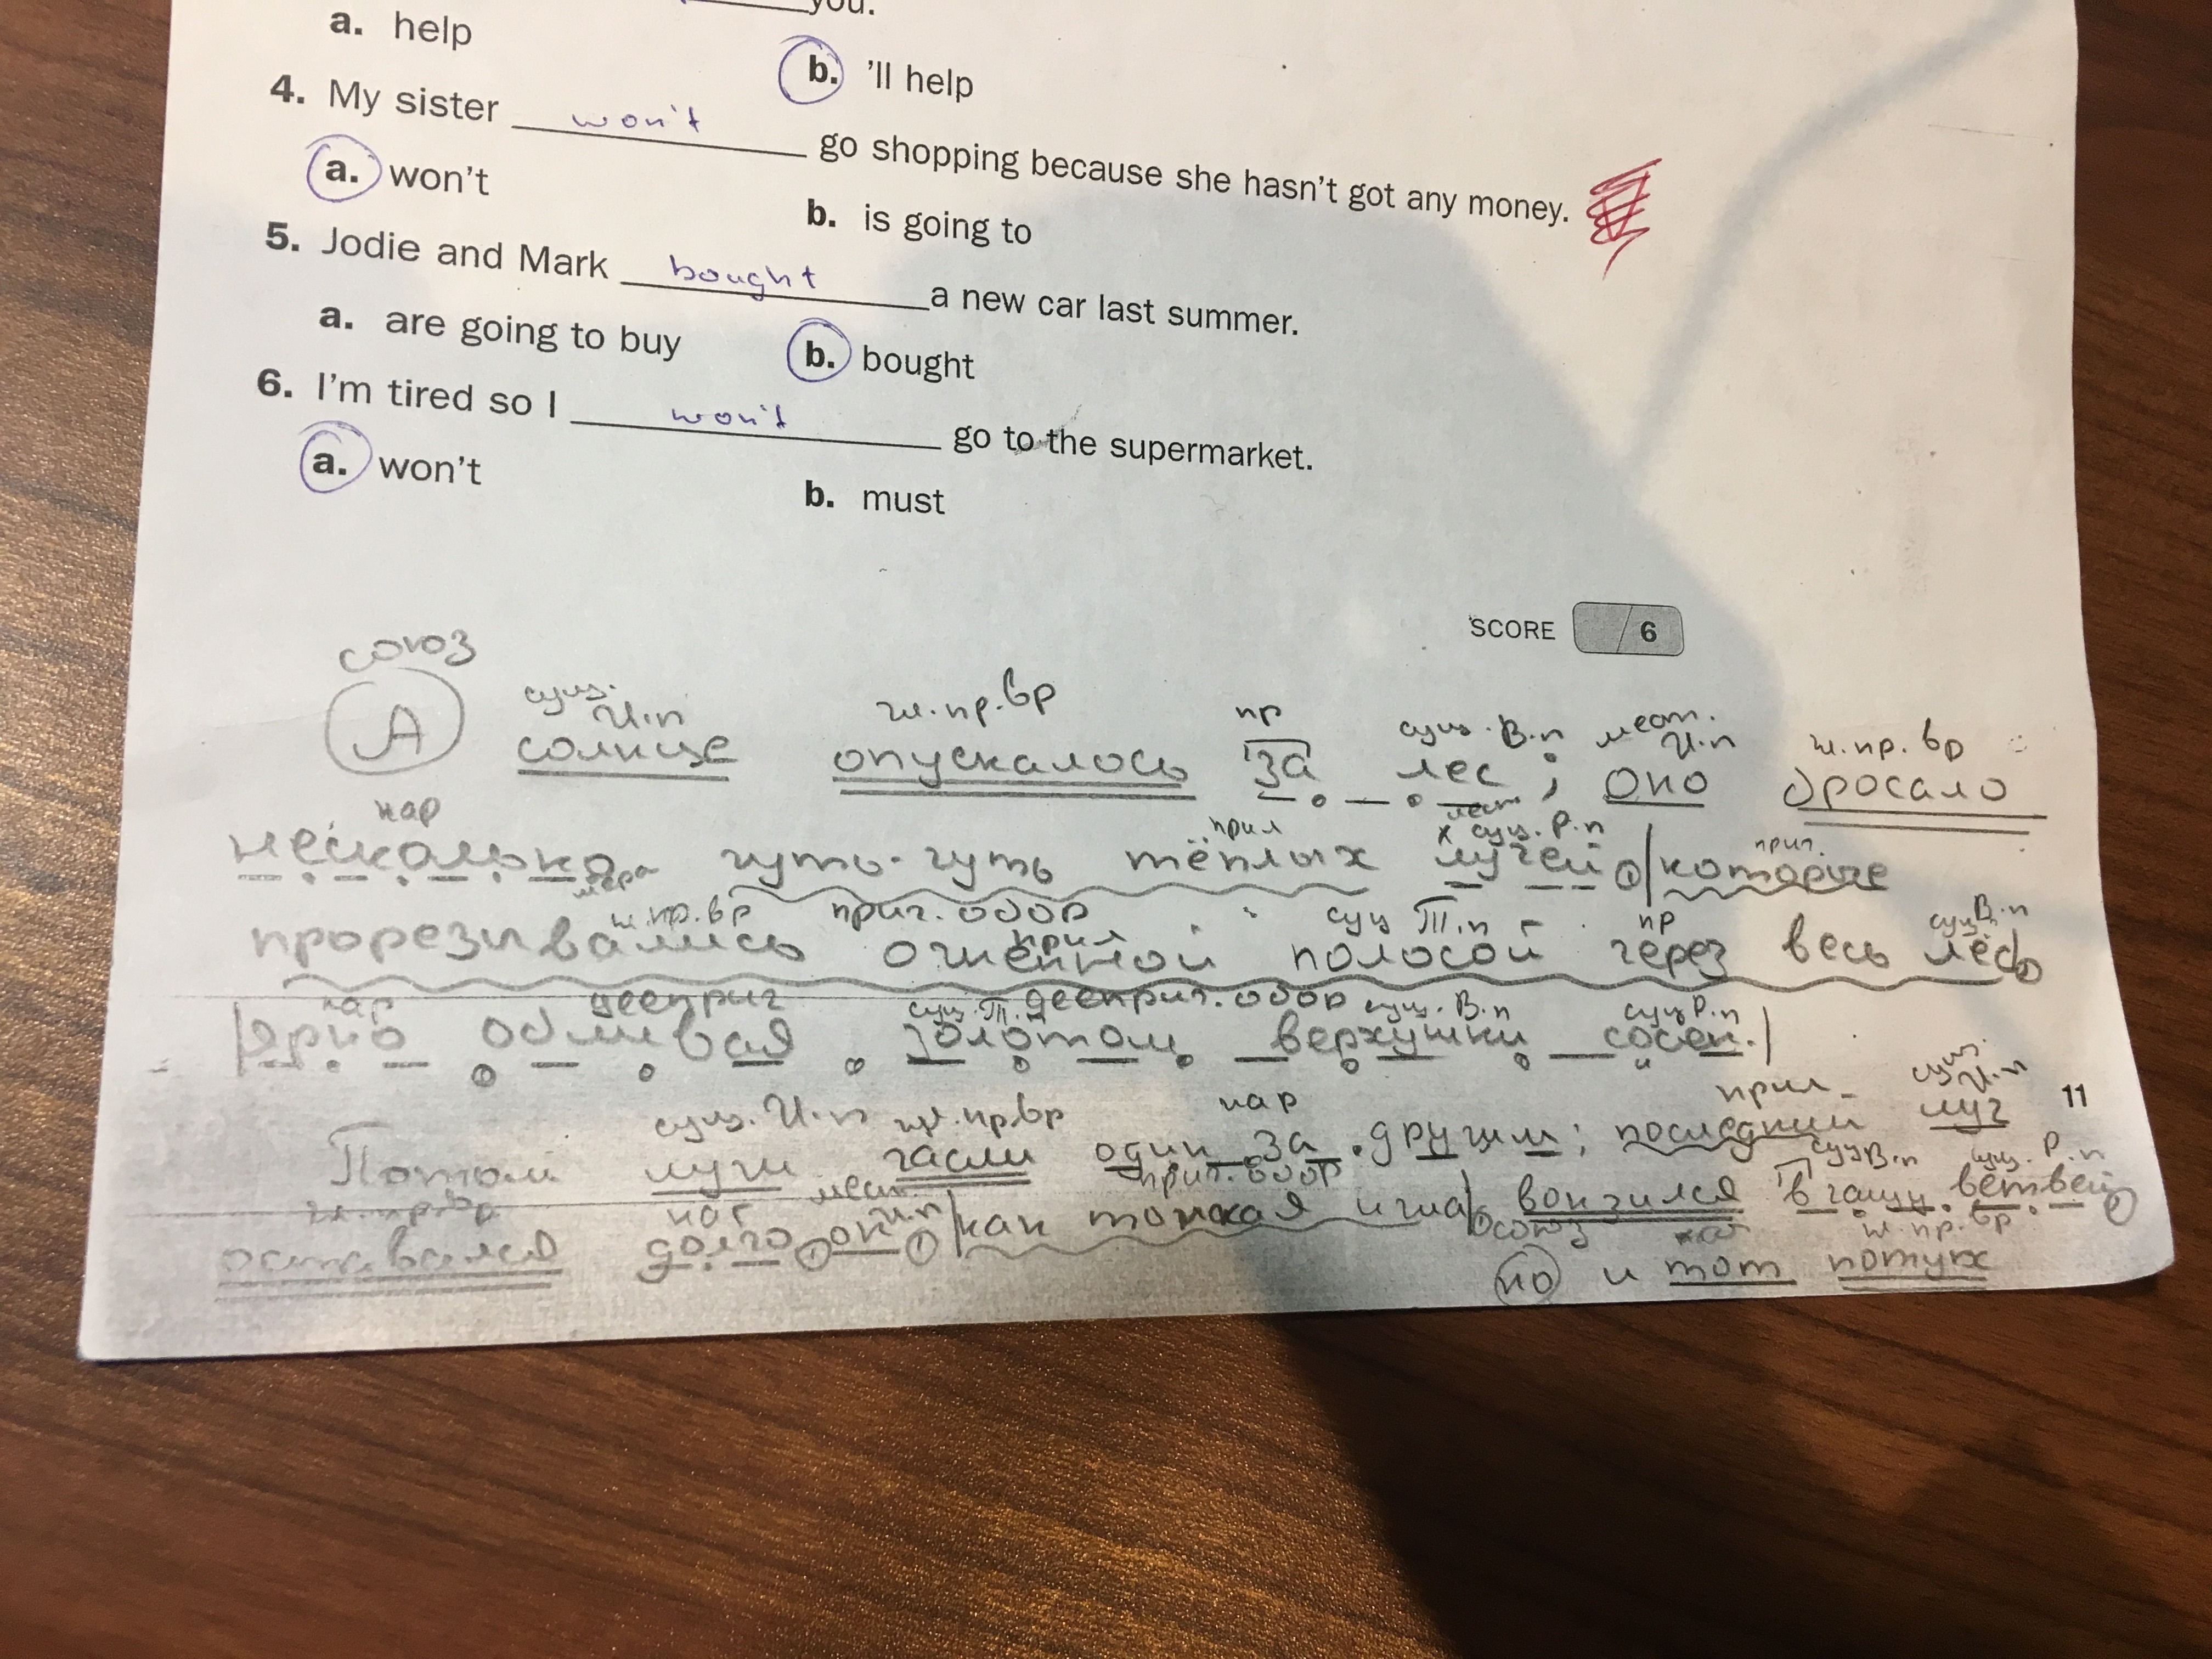 you.
a. help
b. 'll help
4. My sister won't go shopping because she hasn't got any money.
a. won't
b. is going to
5. Jodie and Mark bought a new car last summer.
a. are going to buy
b. bought
6. I'm tired so I won't go to the supermarket.
a. won't
b. must
SCORE /6
союз
сущ. И.п гл. пр. вр пр сущ. В.п мест. И.п гл. пр. вр
А солнце опускалось за лес; оно бросало
нар прил сущ. Р.п прил.
несколько чуть-чуть тёплых лучей, которые
гл. пр. вр прич. обор прил сущ Т.п пр сущ В.п
прорезывались огненной полосой через весь лес,
нар дееприч дееприч. обор сущ. Т.п сущ. В.п сущ Р.п
ярко обливая золотом верхушки сосен.
11
сущ. И.п гл. пр. вр нар прил сущ. И.п
Потом лучи гасли один за другим; последний луч
гл. пр. вр нар мест. И.п прич. обор сущ В.п сущ. Р.п
оставался долго, он, как тонкая игла, вонзился в чащу ветвей,
союз гл. пр. вр
но и тот потух